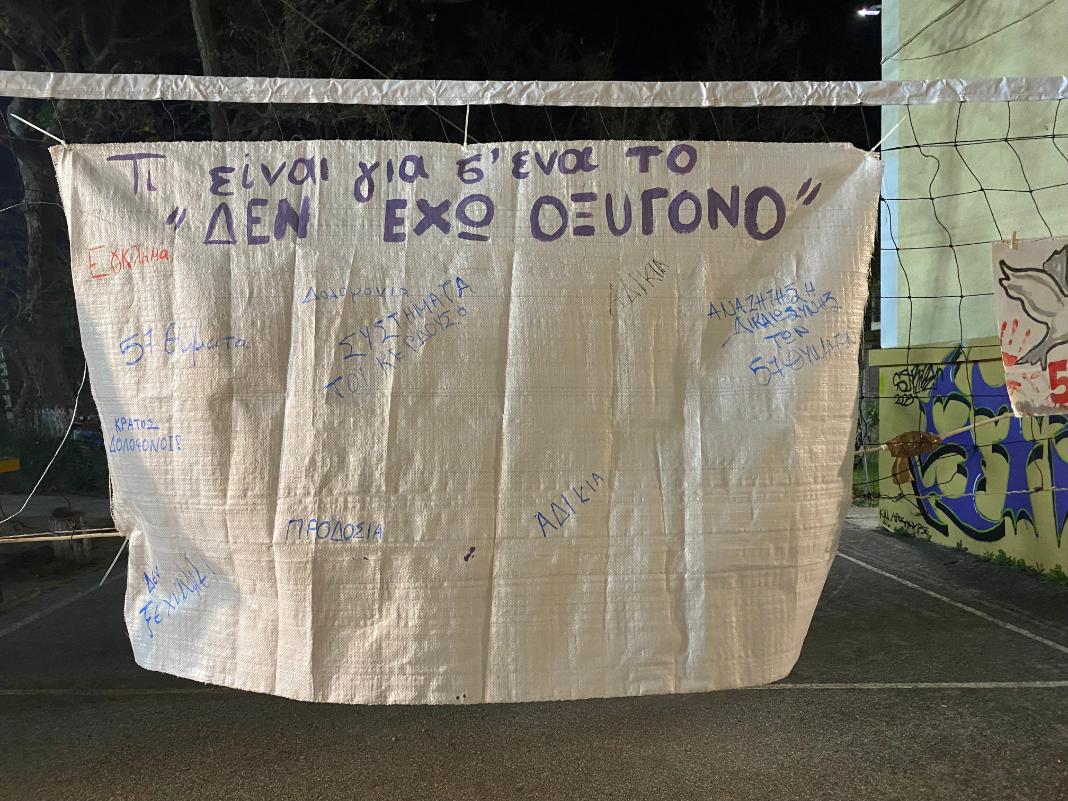 Τι είναι για σ' ενα το
"ΔΕΝ ΕΧΩ ΟΞΥΓΟΝΟ"
Δολοφονία
ΣΥΣΤΗΜΑΤΑ
ΤΟΥ ΚΕΡΔΟΥΣ
ΑΔΙΚΙΑ
ΑΝΑΖΗΤΗΣΗ
ΔΙΚΑΙΟΣΥΝΗΣ
ΤΩΝ
57 ΘΥΜΑΤΩΝ
57 Θυματα
ΚΡΑΤΟΣ
ΔΟΛΟΦΟΝΟΙ!
ΠΡΟΔΟΣΙΑ
ΑΔΙΚΙΑ
Δεν
ξεχιναμε
5
2023